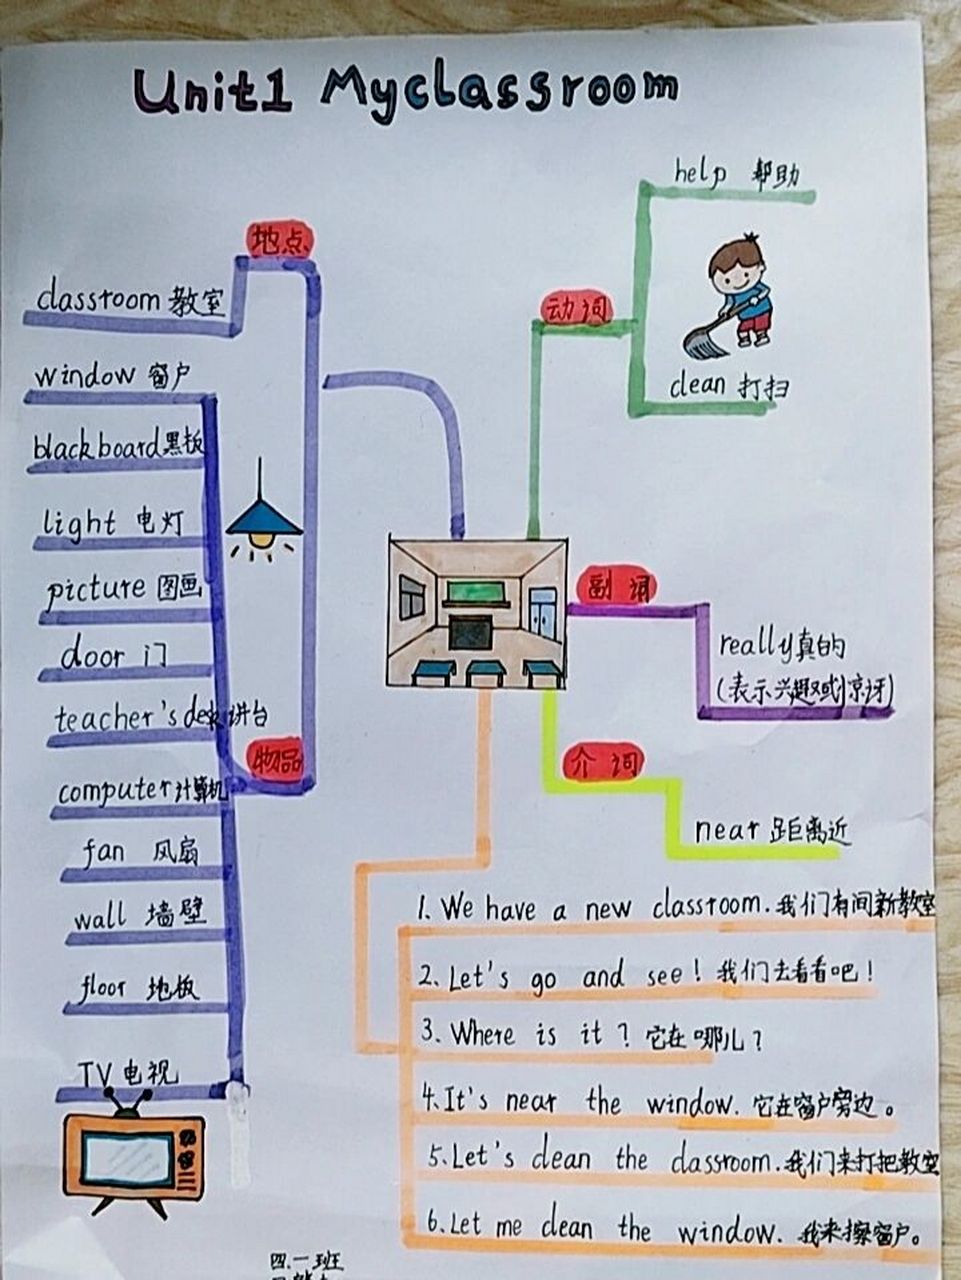 Unit1 Myclassroom
地点
classroom 教室
物品
window 窗户
blackboard 黑板
light 电灯
picture 图画
door 门
teacher's desk 讲台
computer 计算机
fan 风扇
wall 墙壁
floor 地板
TV 电视
动词
help 帮助
clean 打扫
副词
really 真的
(表示兴趣或惊讶)
介词
near 距离近
1. We have a new classroom. 我们有间新教室
2. Let's go and see! 我们去看看吧!
3. Where is it? 它在哪儿?
4. It's near the window. 它在窗户旁边。
5. Let's clean the classroom. 我们来打把教室
6. Let me clean the window. 我来擦窗户。
四.一班